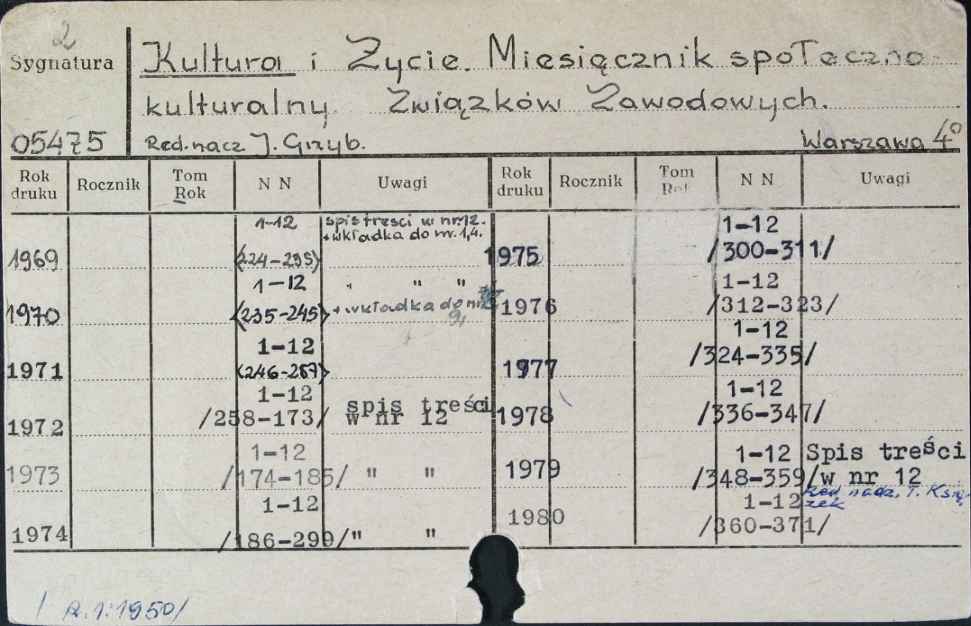 2
Sygnatura
Kultura i Życie. Miesięcznik społeczno-
kulturalny. Związków Zawodowych.
05475 Red. nacz J. Grzyb. Warszawa 4°
Rok druku Rocznik Tom Rok N N Uwagi Rok druku Rocznik Tom Rok N N Uwagi
1969 1-12 (224-235) spis treści w nr 12. + wkładka do nr. 1,4.
1970 1-12 (235-245) " " " + wkładka do nr 9,
1971 1-12 (246-257)
1972 1-12 /258-173/ spis treści w nr 12
1973 1-12 /174-185/ " "
1974 1-12 /186-299/ " "
1975 1-12 /300-311/
1976 1-12 /312-323/
1977 1-12 /324-335/
1978 1-12 /336-347/
1979 1-12 /348-359/ Spis treści w nr 12
1980 1-12 /360-371/ Red. nacz. T.
/ R.1:1950/